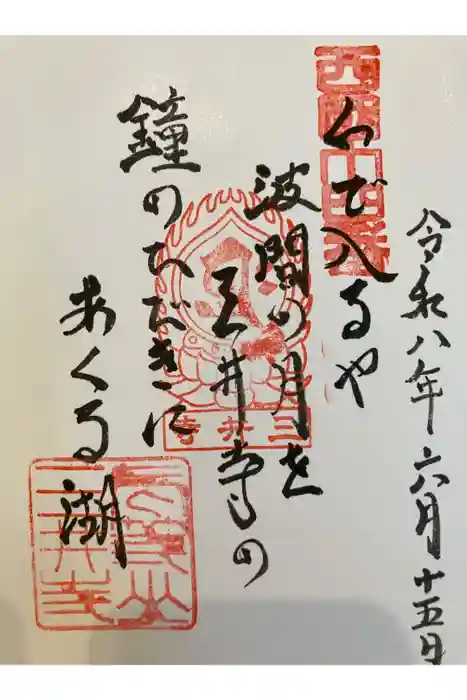 令和八年六月十五日
西国十四番
いで入るや
波間の月を
三井寺の
鐘のひびきに
あくる湖
三井寺
長等山
三井寺